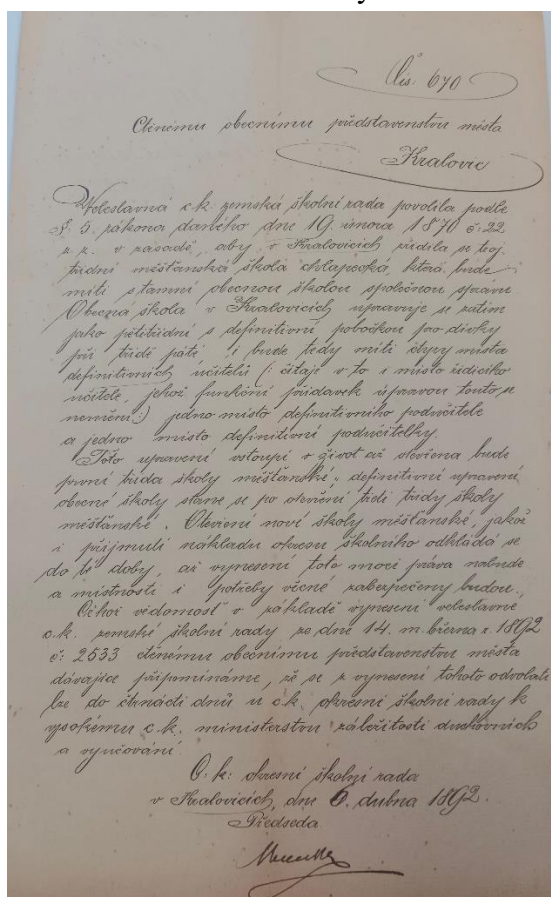 Čís. 670
Ctěnému obecnímu představenstvu města
Kralovic
Veleslavná c. k. zemská školní rada povolila podle
§. 5. zákona daného dne 19. února 1870 č. 22
z. z. v zásadě, aby v Kralovicích zřídila se troj
třídní měšťanská škola chlapecká, která bude
míti s tamní obecnou školou společnou správu
Obecná škola v Kralovicích upravuje se zatím
jako pětitřídní s definitivní pobočkou pro dívky
při třídě páté, i bude tedy míti čtyry místa
definitivních učitelů (: čítajíc v to i místo řídícího
učitele, jehož funkční přídavek úpravou touto se
nemění :) jedno místo definitivního podučitele
a jedno místo definitivní podučitelky.
Toto upravení vstoupí v život až otevřena bude
první třída školy měšťanské, definitivní upravení
obecné školy stane se po otevření třetí třídy školy
měšťanské. Otevření nové školy měšťanské, jakož
i přijmutí nákladu okresu školního odkládá se
do té doby, až vynesení toto moci práva nabude
a místnosti i potřeby věcné zabezpečeny budou.
Očkož vědomost v základě vynesení veleslavné
c. k. zemské školní rady ze dne 14. m. března r. 1892
č: 2533 ctěnému obecnímu představenstvu města
dávajíce připomínáme, že se z vynesení tohoto odvolati
lze do čtrnácti dnů u c. k. okresní školní rady k
vysokému c. k. ministerstvu záležitostí duchovních
a vyučování.
C. k. okresní školní rada
v Kralovicích, dne 6. dubna 1892.
Předseda